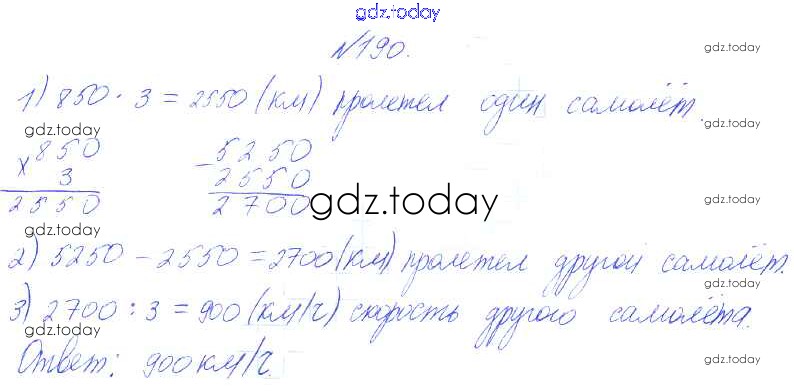 gdz.today
№190.
gdz.today
1) 850 · 3 = 2550 (км) пролетел один самолёт.
gdz.today
gdz.today
× 850
3
2550
− 5250
2550
2700
gdz.today
gdz.today
gdz.today
2) 5250 − 2550 = 2700 (км) пролетел другой самолёт.
gdz.today
gdz.today
3) 2700 : 3 = 900 (км/ч) скорость другого самолёта.
gdz.today
gdz.today
Ответ: 900 км/ч.
gdz.today